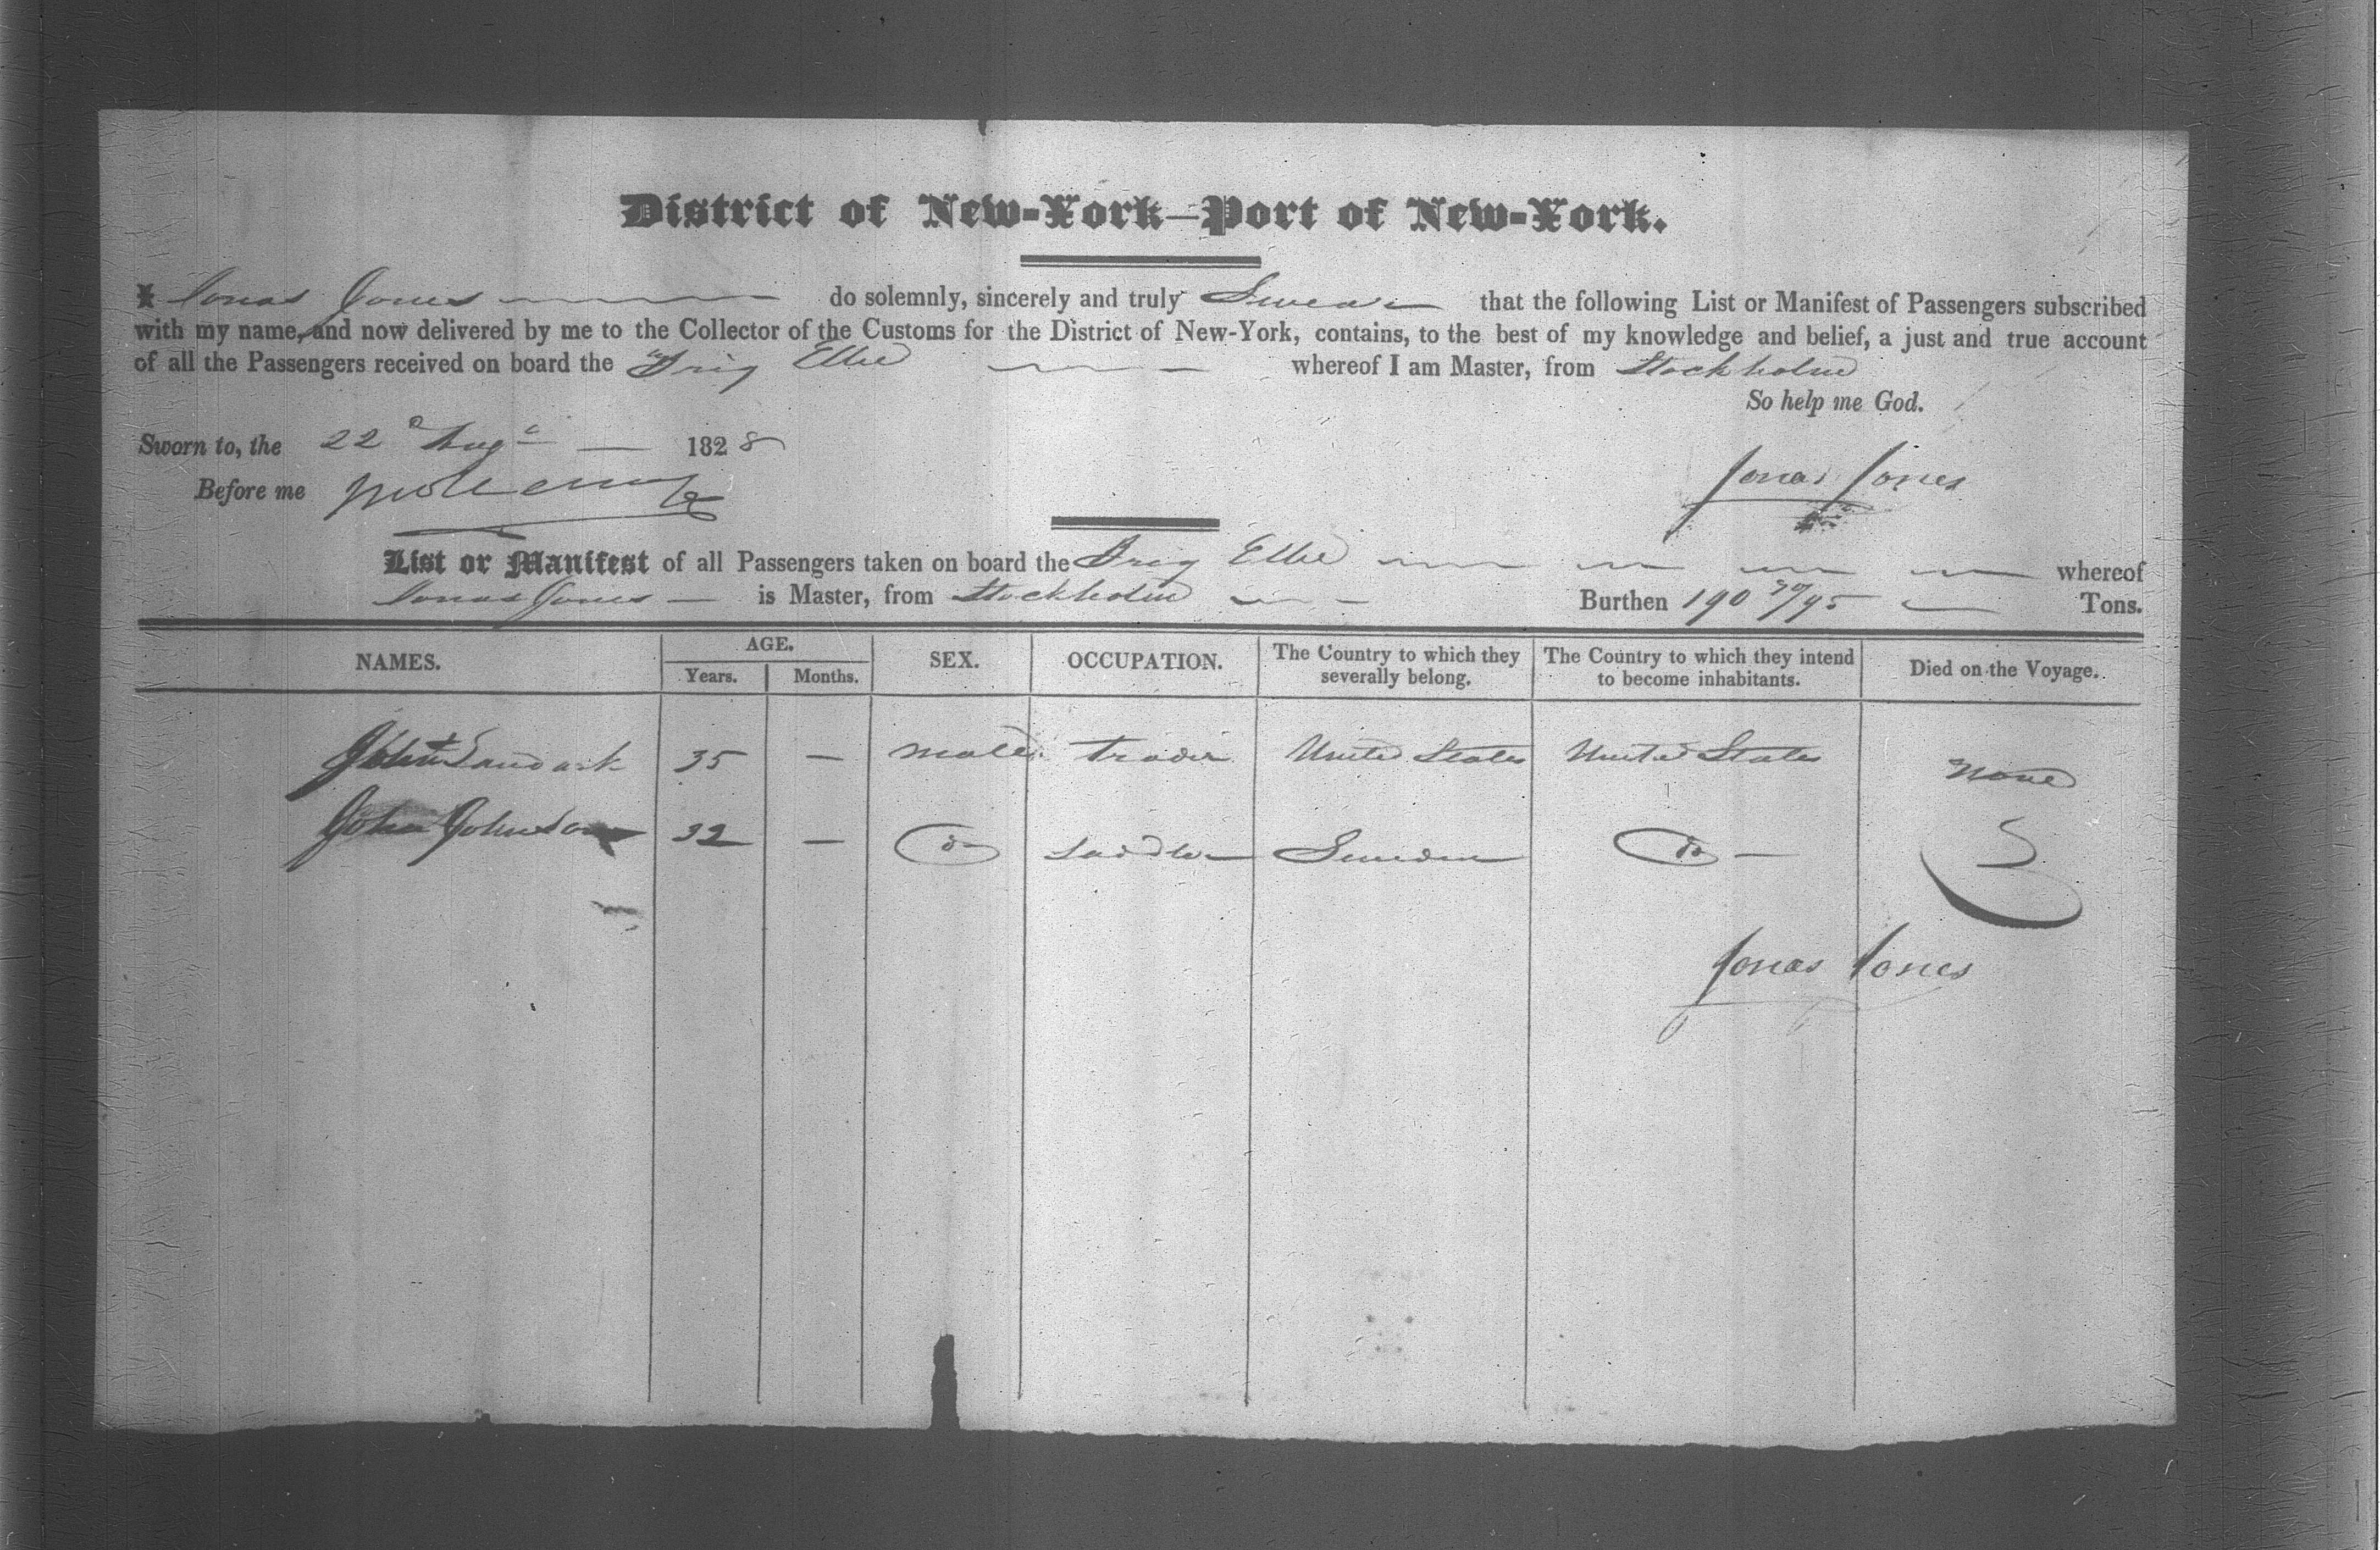 District of New-York—Port of New-York.
I Jonas Jones do solemnly, sincerely and truly Swear that the following List or Manifest of Passengers subscribed
with my name, and now delivered by me to the Collector of the Customs for the District of New-York, contains, to the best of my knowledge and belief, a just and true account
of all the Passengers received on board the Brig whereof I am Master, from Stockholm
So help me God.
Sworn to, the 22d Augt 1828
Jonas Jones
Before me
List or Manifest of all Passengers taken on board the Brig whereof
Jonas Jones is Master, from Stockholm Burthen 190 /95 Tons.
NAMES. AGE. Years. Months. SEX. OCCUPATION. The Country to which they severally belong. The Country to which they intend to become inhabitants. Died on the Voyage.
John 35 — male trader United States United States None
John Johnson 32 — do saddler Sweden do —
Jonas Jones